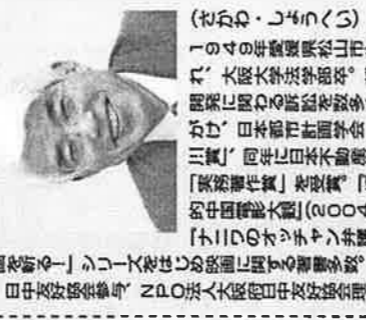 (さかわ・しょうへい)
1949年愛媛県松山市
れ、大阪大学法学部卒。
開発に関わる訴訟を数多
がけ、日本都市計画学会
川賞」、同年に日本不動産
「実務著作賞」を受賞。『
的中国電影大観』(2004
『ナニワのオッチャン弁護
画を斬る!』シリーズをはじめ映画に関する著書多数。
日中友好協会参与、NPO法人大阪府日中友好協会理